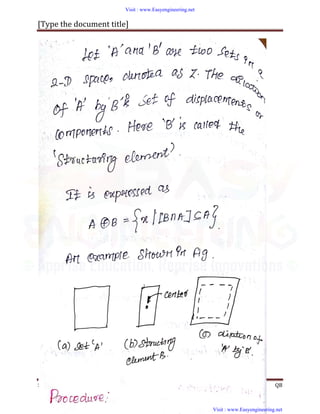 Visit : www.Easyengineering.net
[Type the document title]
Let 'A' and 'B' are two sets in a
2-D space, denoted as Z. The dilation
of 'A' by B is set of displacements or
components. Here 'B' is called the
'Structuring element'.
It is expressed as
A ⊕ B = {x | [B∩A] ⊆ A}.
An example shown in Ag.
center
(a) Set 'A'
(b) Structuring
element B.
(c) dilation of
'A' by 'B'.
QB
Procedure:
Visit : www.Easyengineering.net